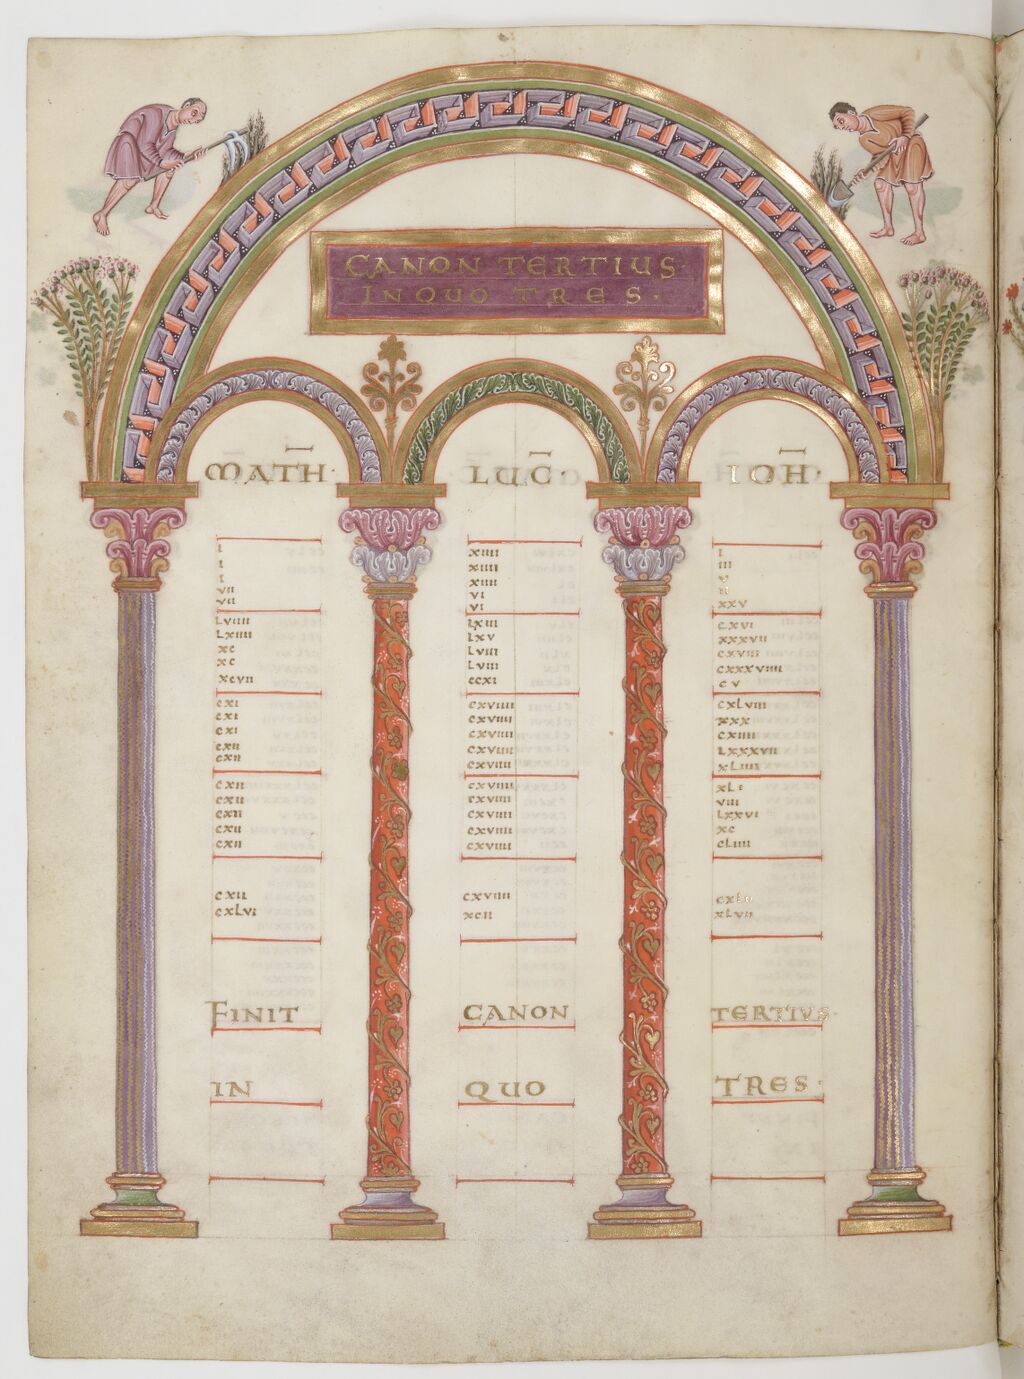 CANON TERTIUS·
IN QUO TRES·
MATH· LUC· IOH·
I XIIII I
I XIIII III
I XIIII V
VII VI II
VII VI XXV
LVIIII LXIII CXVI
LXIIII LXV XXXVII
XC LVIII CXVIII
XC LVIII CXXXVIIII
XCVII CCXI CV
CXI CXVIIII CXLVIII
CXI CXVIIII XXX
CXI CXVIIII CXIIII
CXII CXVIIII LXXXVII
CXII CXVIIII XLIIII
CXII CXVIIII XLI
CXII CXVIIII VIII
CXII CXVIIII LXXVI
CXII CXVIIII XC
CXII CXVIIII CLIIII
CXII CXVIIII
CXLVI XCII XLVII
FINIT CANON TERTIUS·
IN QUO TRES·